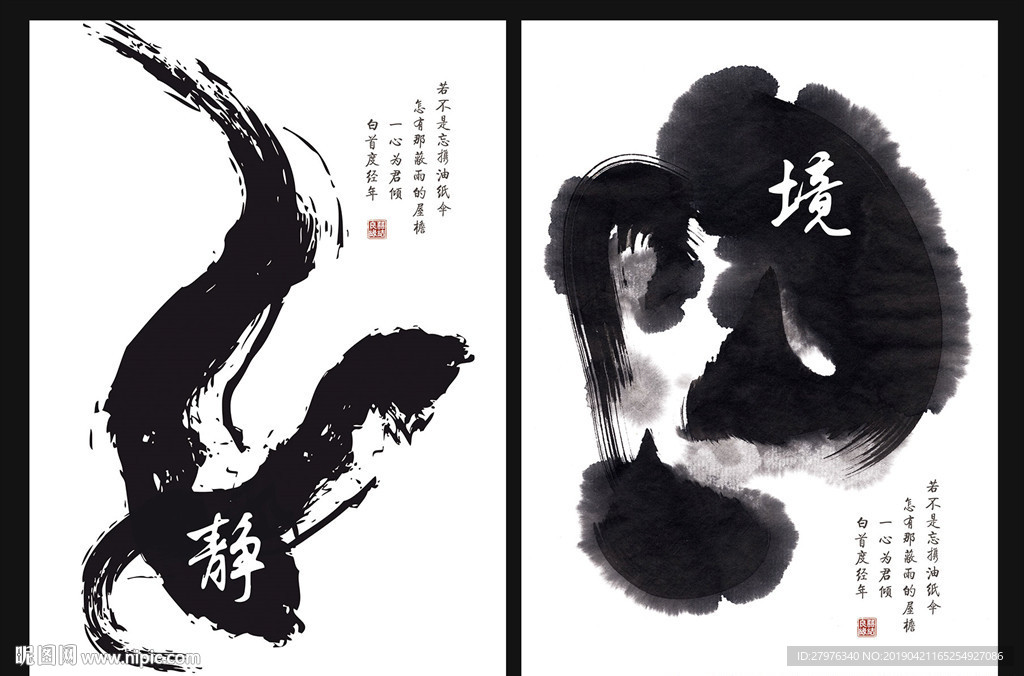 若不是忘携油纸伞
怎有那蔽雨的屋檐
一心为君倾
白首度经年
静
境
若不是忘携油纸伞
怎有那蔽雨的屋檐
一心为君倾
白首度经年
昵图网 www.nipic.com
ID:27976340 NO:20190421165254927086